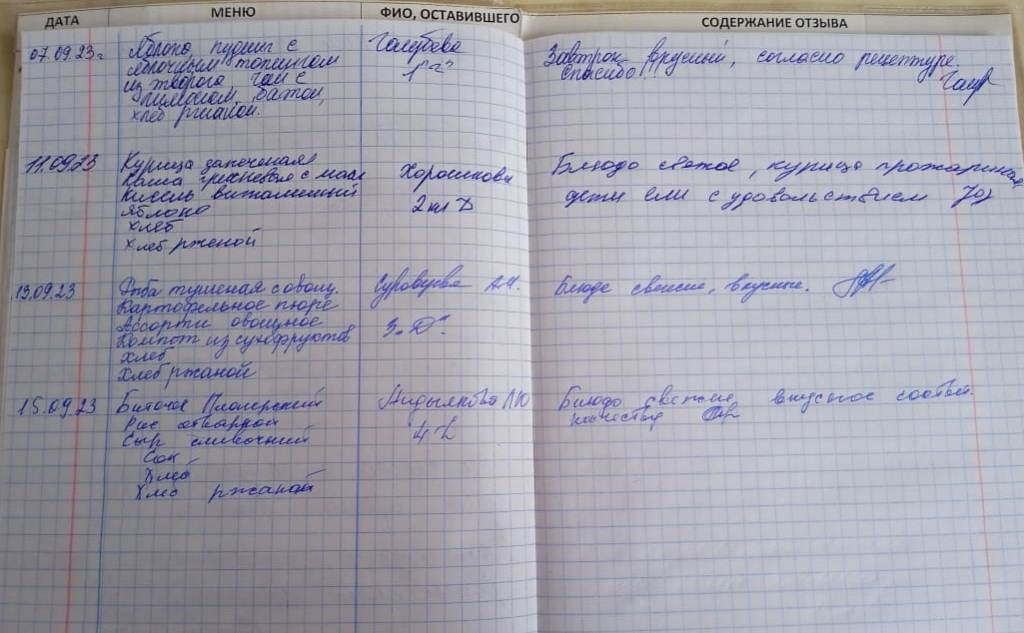 ДАТА МЕНЮ ФИО, ОСТАВИВШЕГО СОДЕРЖАНИЕ ОТЗЫВА
07.09.23г Яблоко, пудинг с Голубева Завтрак вкусный, согласно рецептуре.
яблочным топингом спасибо!
из творога чай с
лимоном, батон,
хлеб ржаной.
11.09.23 Курица запеченая Блюдо свежое, курица прожаринная
Каша гречневая с масл Хорошкова
Кисель витаминный дети ели с удовольствием
Яблоко 2 кл
Хлеб
Хлеб рженой
13.09.23 Рыба тушеная с овощ. Суровцева А.Н. Блюдо свежие, вкусные.
Картофельное пюре
Ассорти овощное 3
Компот из сухофруктов
Хлеб
Хлеб ржаной
15.09.23 Биточек Пионерский Блюдо свежие, вкусное соотвит.
Рис отварной качеству
Сыр сливочный 4
Сок
Хлеб
Хлеб ржаной